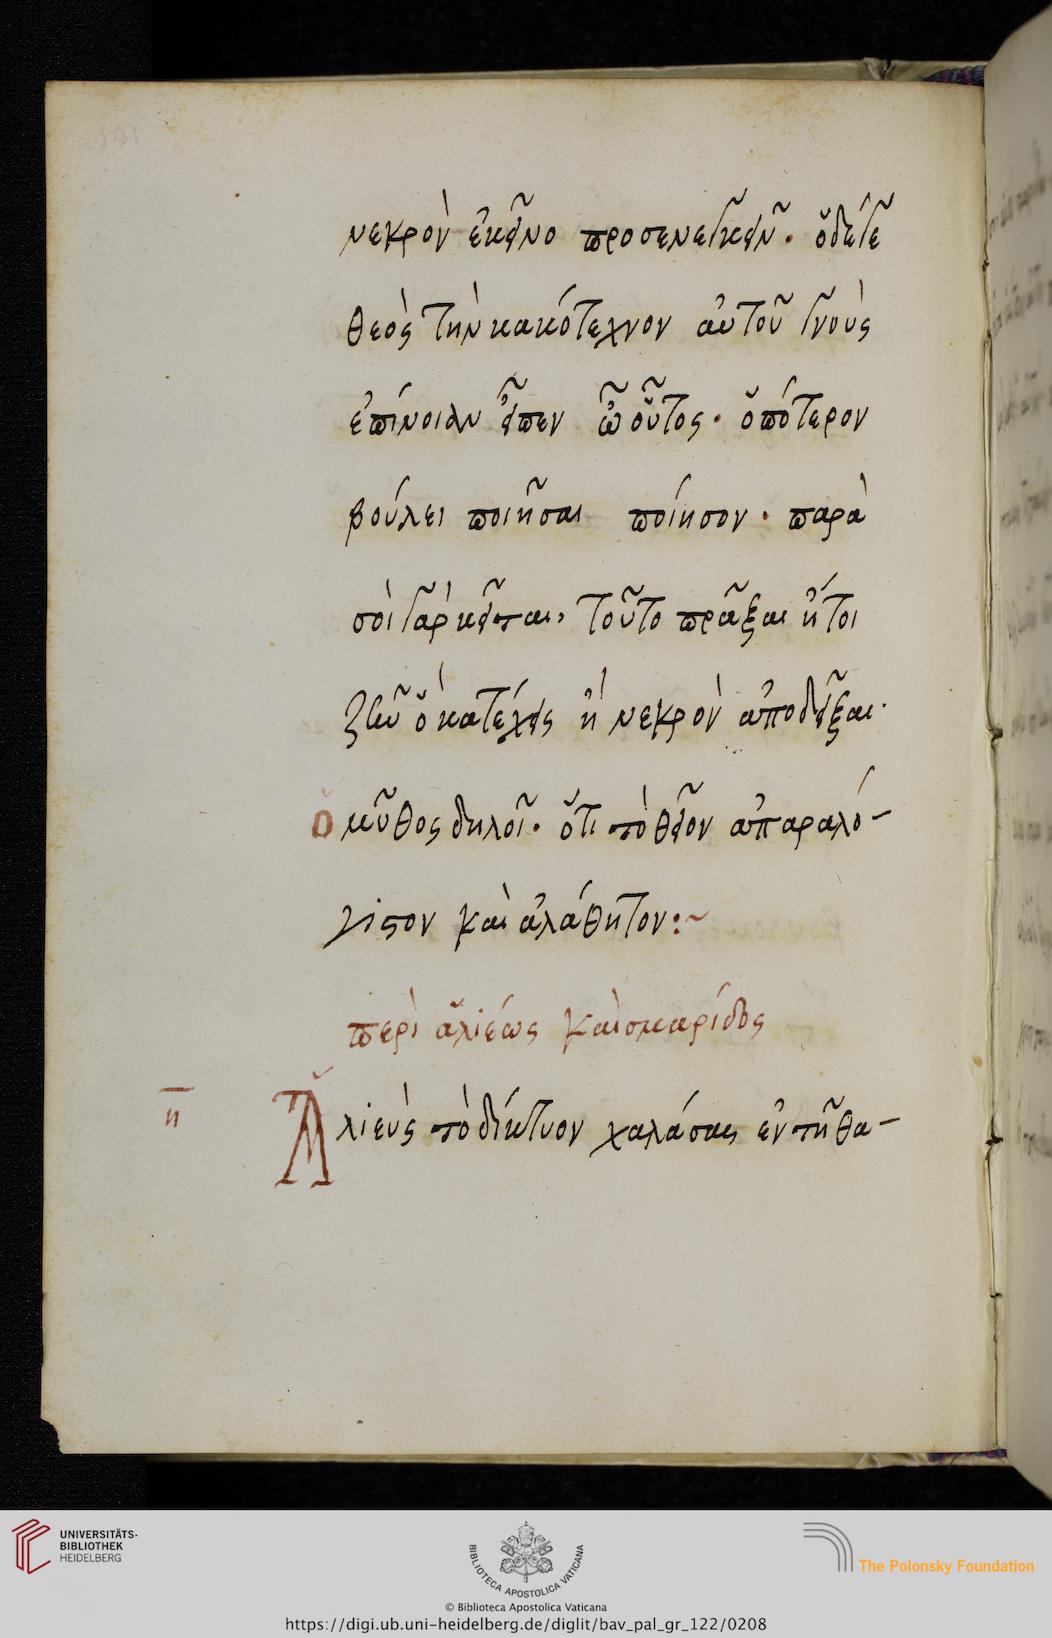 νεκρὸν ἐκεῖνο προσενεγκεῖν. ὅ δέ γε
θεὸς τὴν κακότεχνον αὐτοῦ γνοὺς
ἐπίνοιαν εἶπεν ὦ οὗτος. ὁπότερον
βούλει ποιῆσαι ποίησον. παρὰ
σοὶ γὰρ κεῖται, τοῦτο πρᾶξαι ἤτοι
ζῶν ὃ κατέχεις ἢ νεκρὸν ἀποδεῖξαι.
ὁ μῦθος δηλοῖ. ὅτι τὸ θεῖον ἀπαραλό-
γιστον καὶ ἀλάθητον:~
περὶ ἁλιέως καὶ σμαρίδος
η
Ἁλιεὺς τὸ δίκτυον χαλάσας ἐν τῇ θα-
UNIVERSITÄTS-
BIBLIOTHEK
HEIDELBERG
BIBLIOTECA APOSTOLICA VATICANA
The Polonsky Foundation
© Biblioteca Apostolica Vaticana
https://digi.ub.uni-heidelberg.de/diglit/bav_pal_gr_122/0208